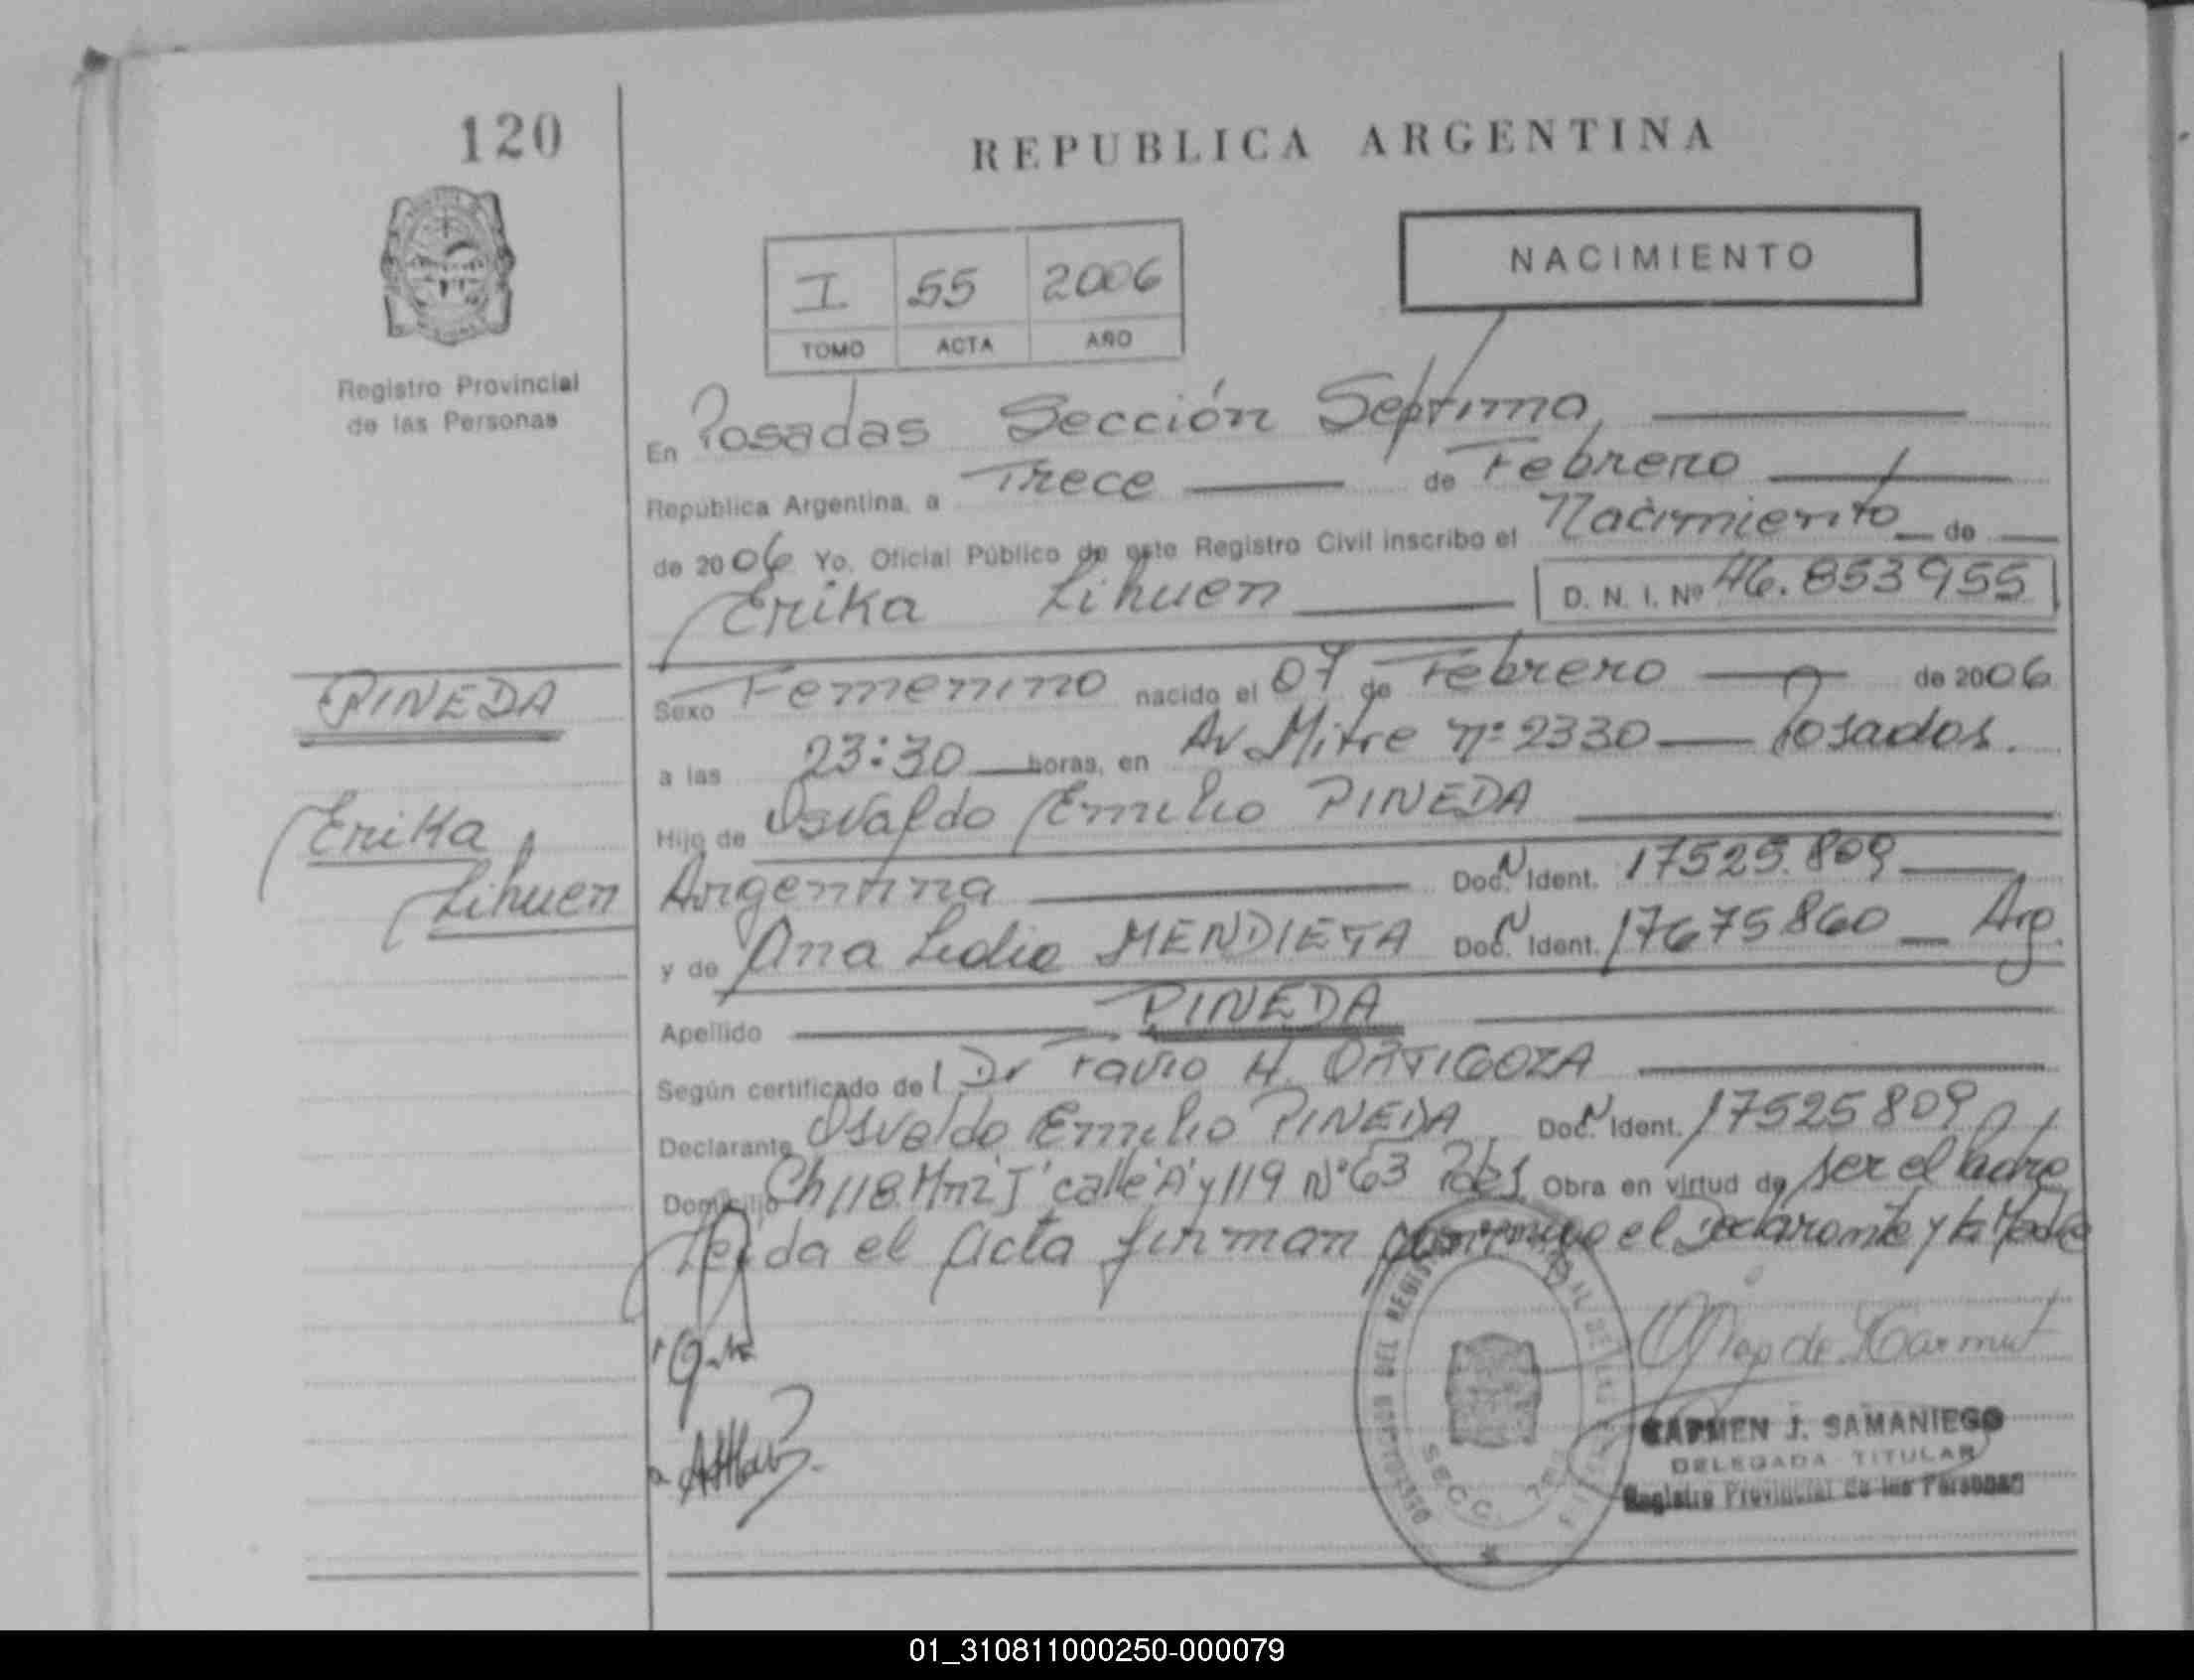 120
REPUBLICA ARGENTINA
Registro Provincial
de las Personas
I 55 2006
TOMO ACTA AÑO
NACIMIENTO
En Posadas Sección Septima,
Republica Argentina, a Trece de Febrero
de 2006 Yo, Oficial Público de este Registro Civil inscribo el Nacimiento de
Erika Lihuen D. N. I. Nº 46.853955
PINEDA
Erika
Lihuen
Sexo Femenino nacido el 07 de Febrero de 2006
a las 23:30 horas, en Av Mitre nº 2330 Posadas.
Hijo de Osvaldo Emilio PINEDA
Argentina Doc. N Ident. 17525.809
y de Ana Lidia MENDIETA Doc. N Ident. 17675860 Arg.
Apellido PINEDA
Según certificado del Dr Favio H. ORTIGOZA
Declarante Osvaldo Emilio PINEDA Doc. N Ident. 17525809
Domicilio Ch 118 Mnz "J" calle "A" y 119 Nº 63 Pdas Obra en virtud de ser el Padre
Leida el Acta firman conmigo el Declarante y la Madre
CARMEN J. SAMANIEGO
DELEGADA TITULAR
Registro Provincial de las Personas
SECC.
01_310811000250-000079